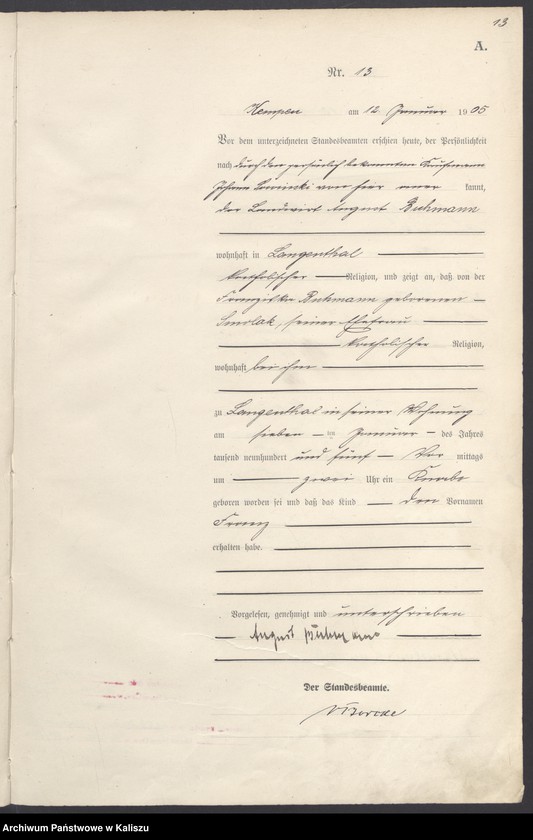 13
A.
Nr. 13
Kempen am 12 Januar 1905
Vor dem unterzeichneten Standesbeamten erschien heute, der Persönlichkeit
nach durch den persönlich bekannten Kaufmann
Johann von hier kannt,
der Landwirt August Buhmann
wohnhaft in Langenthal
katholischer Religion, und zeigt an, daß von der
Franziska Buhmann geborenen
Smolak, seiner Ehefrau
katholischer Religion,
wohnhaft bei ihm
zu Langenthal in seiner Wohnung
am sieben ten Januar des Jahres
tausend neunhundert und fünf Vor mittags
um zwei Uhr ein Knabe
geboren worden sei und daß das Kind den Vornamen
Franz
erhalten habe.
Vorgelesen, genehmigt und unterschrieben
August
Der Standesbeamte.
Archiwum Państwowe w Kaliszu